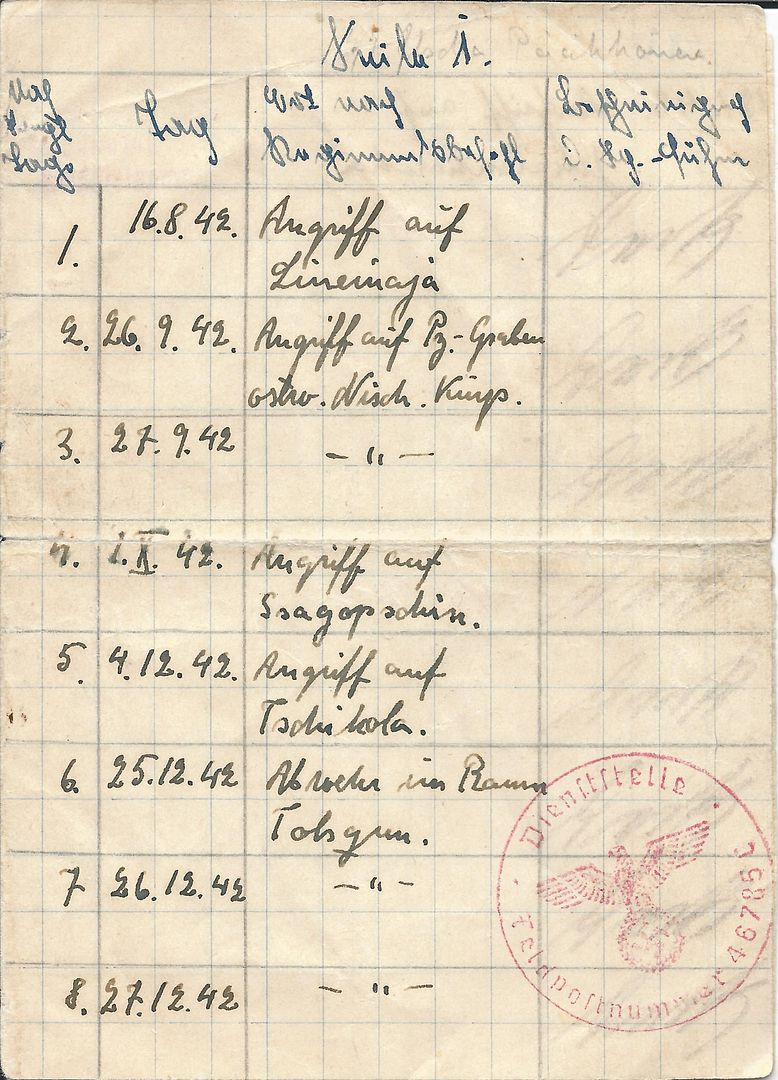 Stufe I.
Tag
Ort nach
Regimentsbefehl
Bescheinigung
d. Kp.-Führer
1. 16.8.42. Angriff auf
Lineinaja
2. 26.9.42. Angriff auf Pz.-Graben
ostw. Nisch. Kurp.
3. 27.9.42 — " —
4. 1.X. 42. Angriff auf
Ssagopschin.
5. 4.12.42. Angriff auf
Tschikola.
6. 25.12.42 Abwehr im Raum
Tobsgun.
7 26.12.42 — " —
8. 27.12.42 — " —
Dienststelle
Feldpostnummer 46789